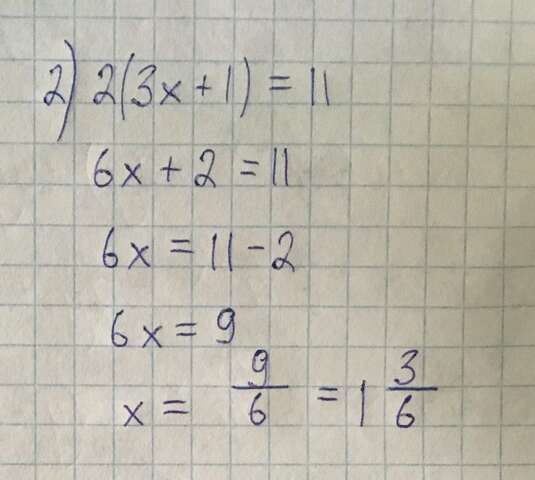 2) 2(3x+1) = 11
6x + 2 = 11
6x = 11 - 2
6x = 9
x = 9/6 = 1 3/6